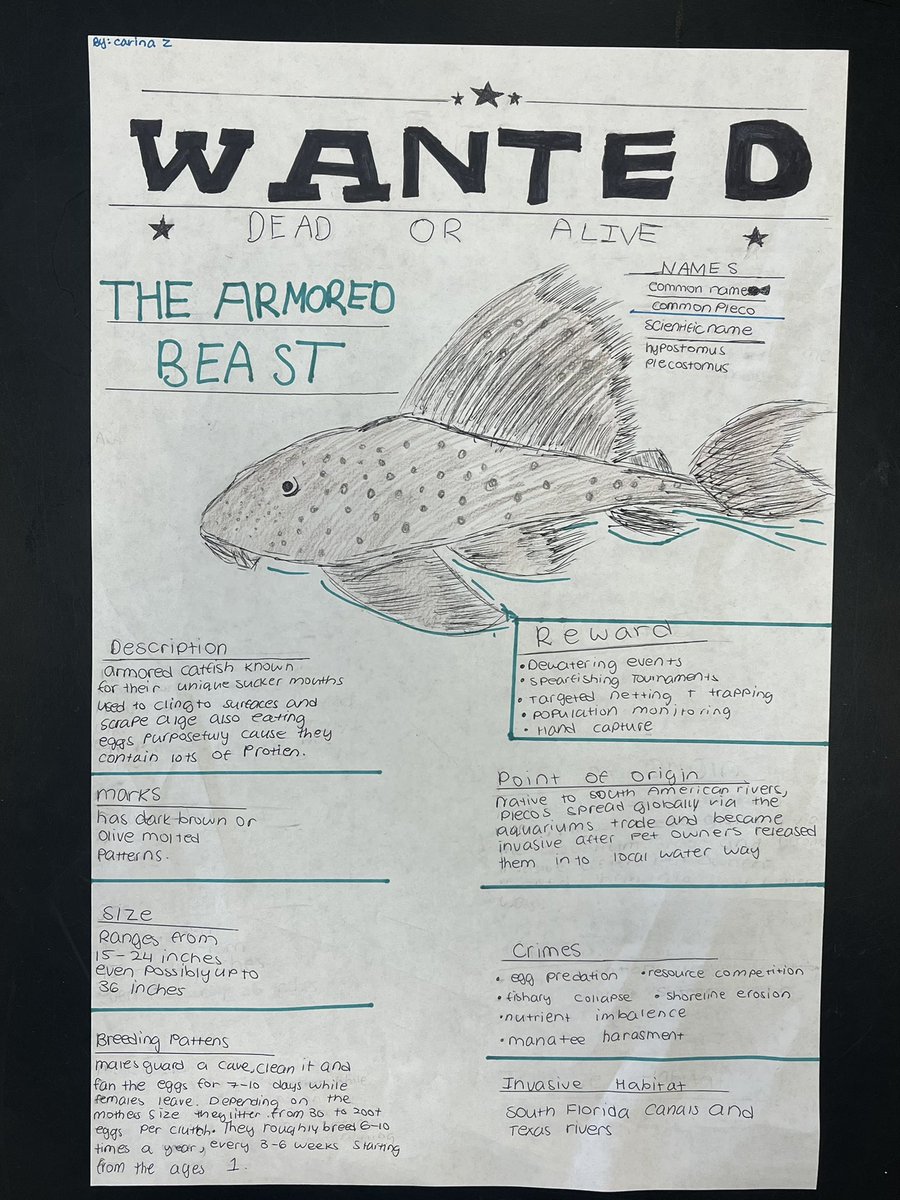 By: carina z
WANTED
DEAD OR ALIVE
THE ARMORED
BEAST
NAMES
common name
common Pleco
scientific name
hypostomus
plecostomus
Description
armored catfish known
for their unique sucker mouths
used to cling to surfaces and
scrape alge also eating
eggs purposefuly cause they
contain lots of Protien.
marks
has dark-brown or
olive molted
Patterns.
Size
Ranges from
15-24 inches
even possibly up to
36 inches
Breeding Pattens
males guard a cave, clean it and
fan the eggs for 7-10 days while
females leave. Depending on the
mothers size they litter from 30 to 200+
eggs per clutch. They roughly breed 6-10
times a year, every 3-6 weeks starting
from the ages 1.
Reward
• Dewatering events
• Spearfishing Tournaments
• Targeted netting + trapping
• Population monitoring
• Hand capture
Point of origin
native to South American rivers,
Plecos spread globally via the
aquariums trade and became
invasive after pet owners released
them in to local water way
Crimes
• egg predation • resource competition
• fishary collapse • shoreline erosion
• nutrient imbalence
• manatee harasment
Invasive Habitat
South Florida canals and
Texas rivers